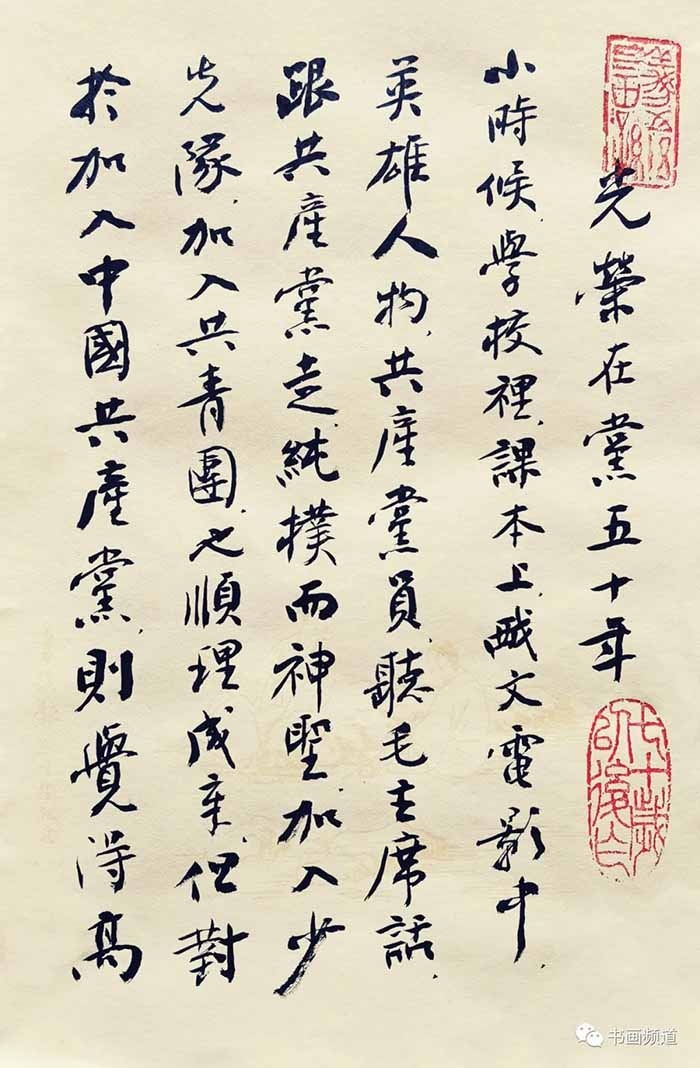 光榮在黨五十年
小時候，學校裡，課本上，文電影中，
英雄人物，共產黨員，聽毛主席話，
跟共產黨走，純樸而神聖，加入少
先隊，加入共青團，也順理成章，但對
於加入中國共產黨，則覺得高
书画频道